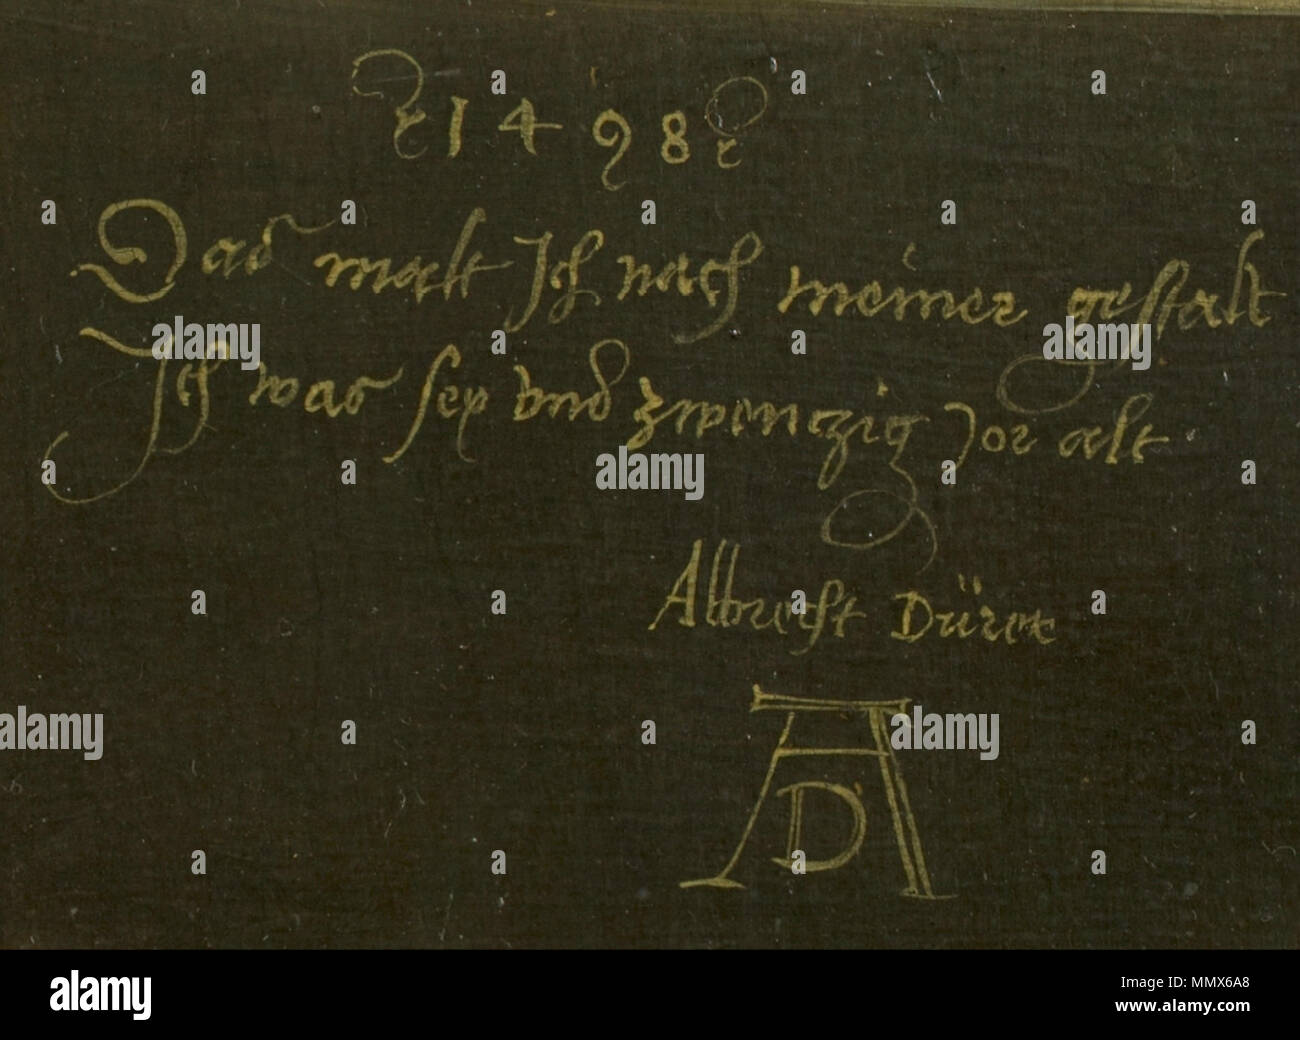 1498
Das malt Ich nach meiner gestalt
Ich was sex vnd zwenczig Jor alt
Albrecht Dürer
AD
alamy
alamy
alamy
alamy
alamy
Image ID: MMX6A8
www.alamy.com